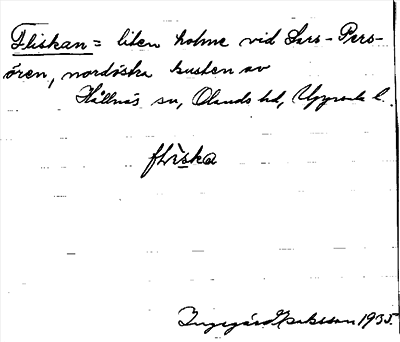 Fliskan = liten holme vid Lars-Pers-
ören, nordöstra kusten av
Hållnäs sn, Olands hd, Uppsala l.
fliska
Ingegärd Jakobsson 1935.